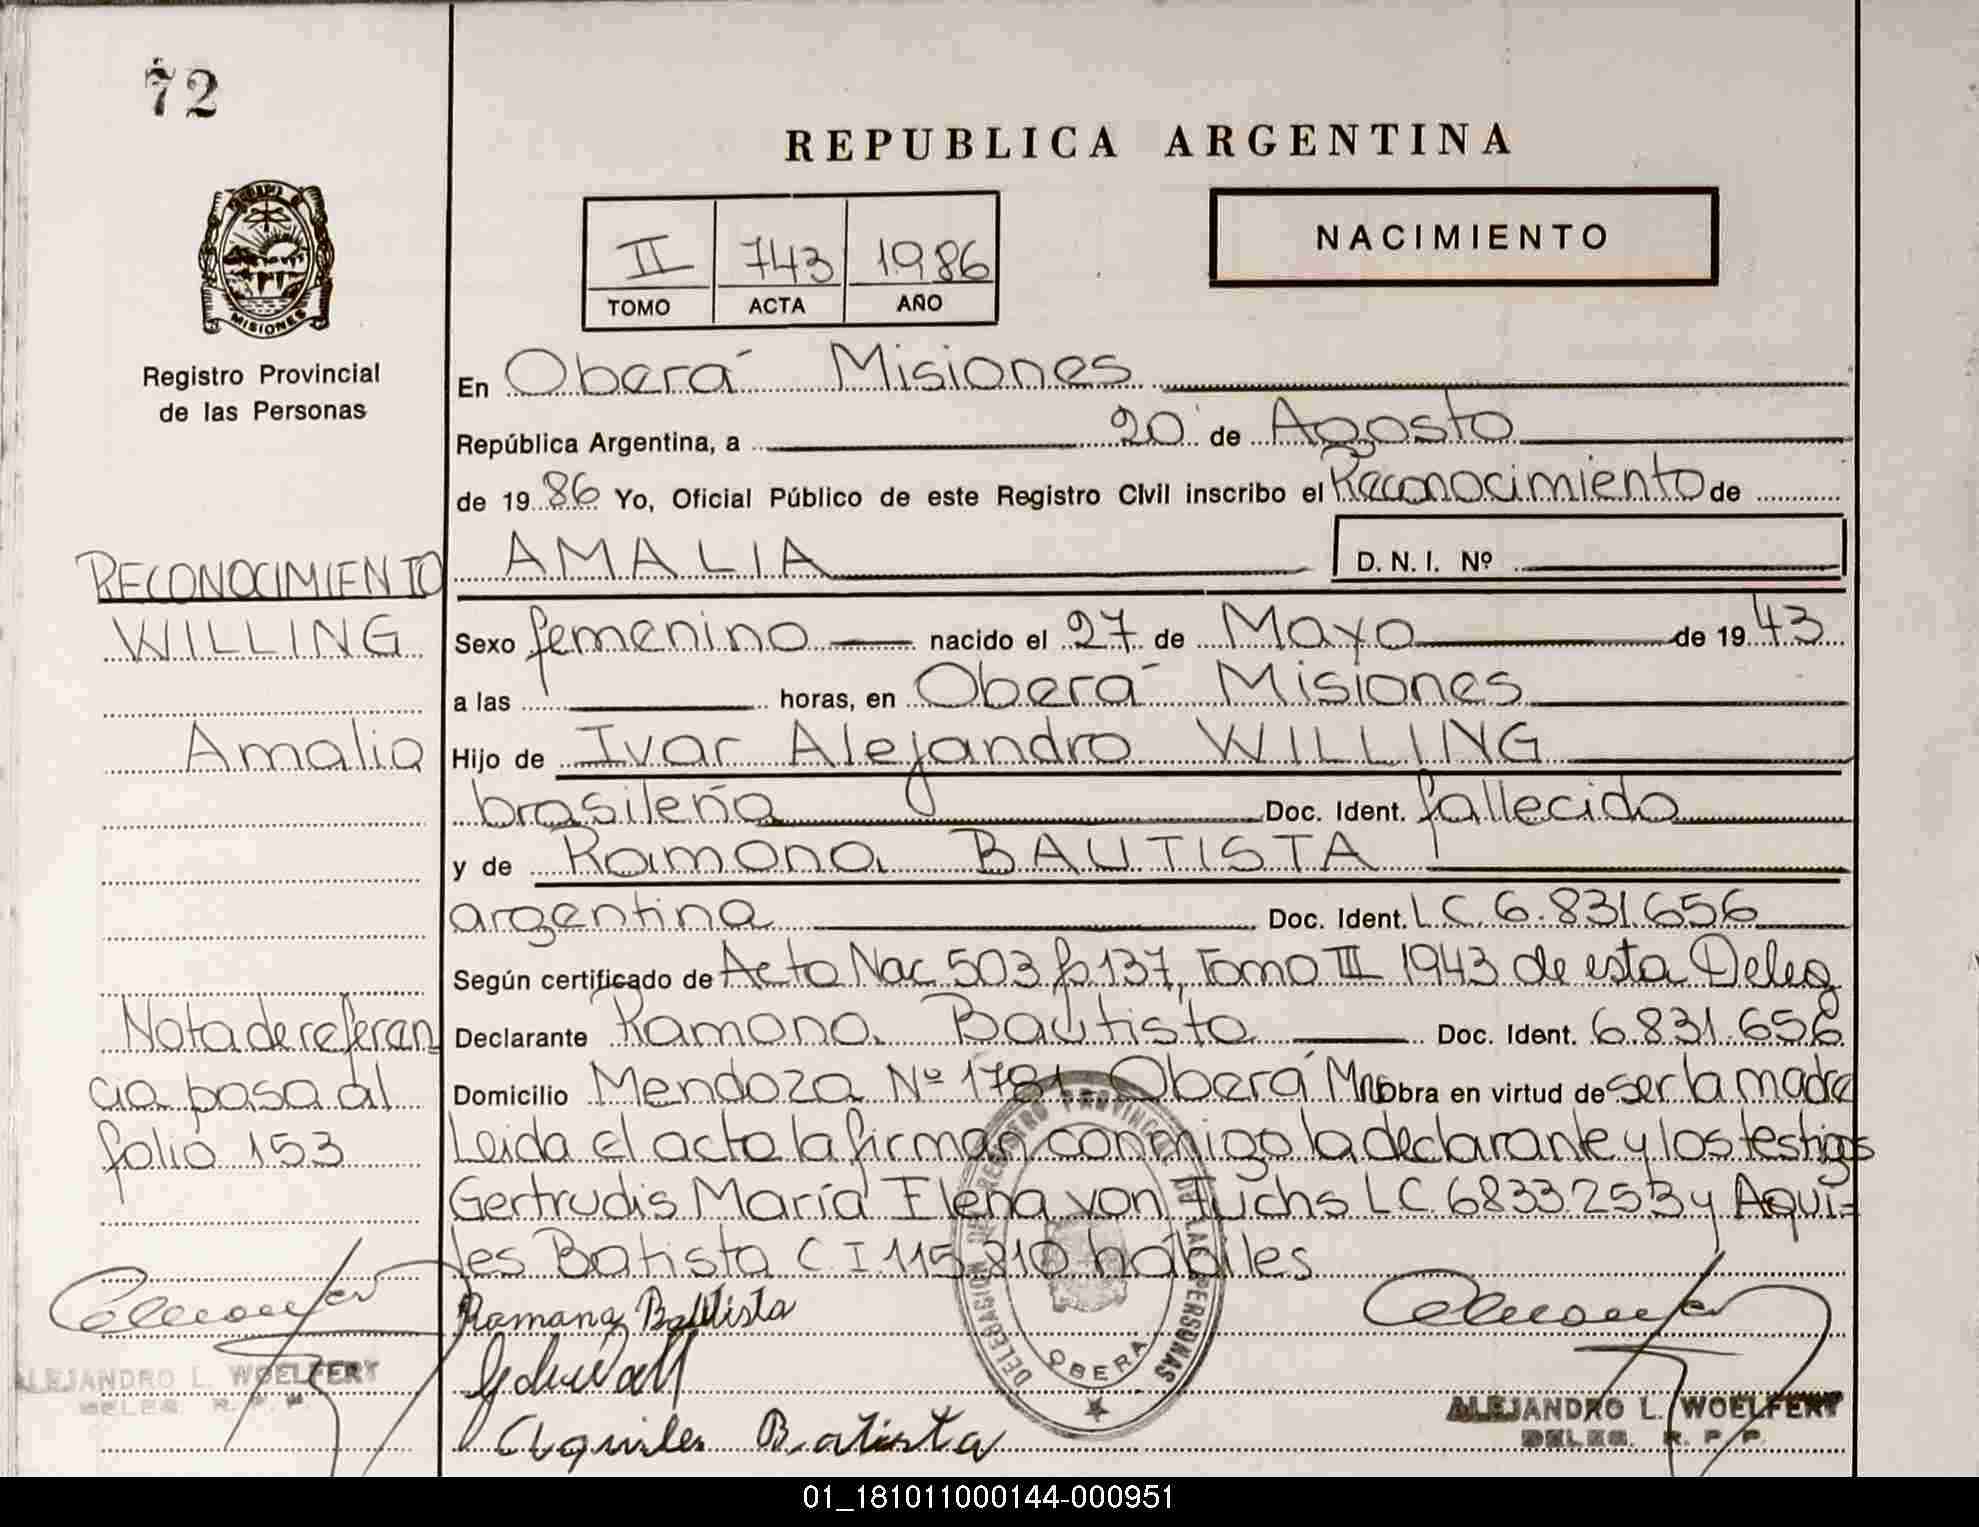 72
REPUBLICA ARGENTINA
II 743 1986
TOMO ACTA AÑO
NACIMIENTO
MISIONES
Registro Provincial
de las Personas
En Oberá Misiones
República Argentina, a 20 de Agosto
de 19 86 Yo, Oficial Público de este Registro Civil inscribo el Reconocimiento de
AMALIA D. N. I. Nº
RECONOCIMIENTO
WILLING
Amalia
Sexo femenino nacido el 27 de Mayo de 19 43
a las horas, en Oberá Misiones
Hijo de Ivar Alejandro WILLING
brasileña Doc. Ident. fallecido
y de Ramona BAUTISTA
argentina Doc. Ident. L C. 6.831.656
Según certificado de Acta Nac 503 fo 137, Tomo III 1943 de esta Deleg
Declarante Ramona Bautista Doc. Ident. 6.831.656
Domicilio Mendoza Nº 1781 Oberá Mnes Obra en virtud de ser la madre
Leida el acta la firman conmigo la declarante y los testigos
Gertrudis María Elena von Fuchs L C. 6833253 y Aqui-
les Batista C I 115.810 hábiles
Nota de referen
cia pasa al
folio 153
Ramana Battista
Aquiles Batista
DELEGACION DE REGISTRO PROVINCIAL DE LAS PERSONAS
OBERA
ALEJANDRO L. WOELFERT
DELEG. R. P. P.
ALEJANDRO L. WOELFERT
DELEG. R. P. P.
01_181011000144-000951